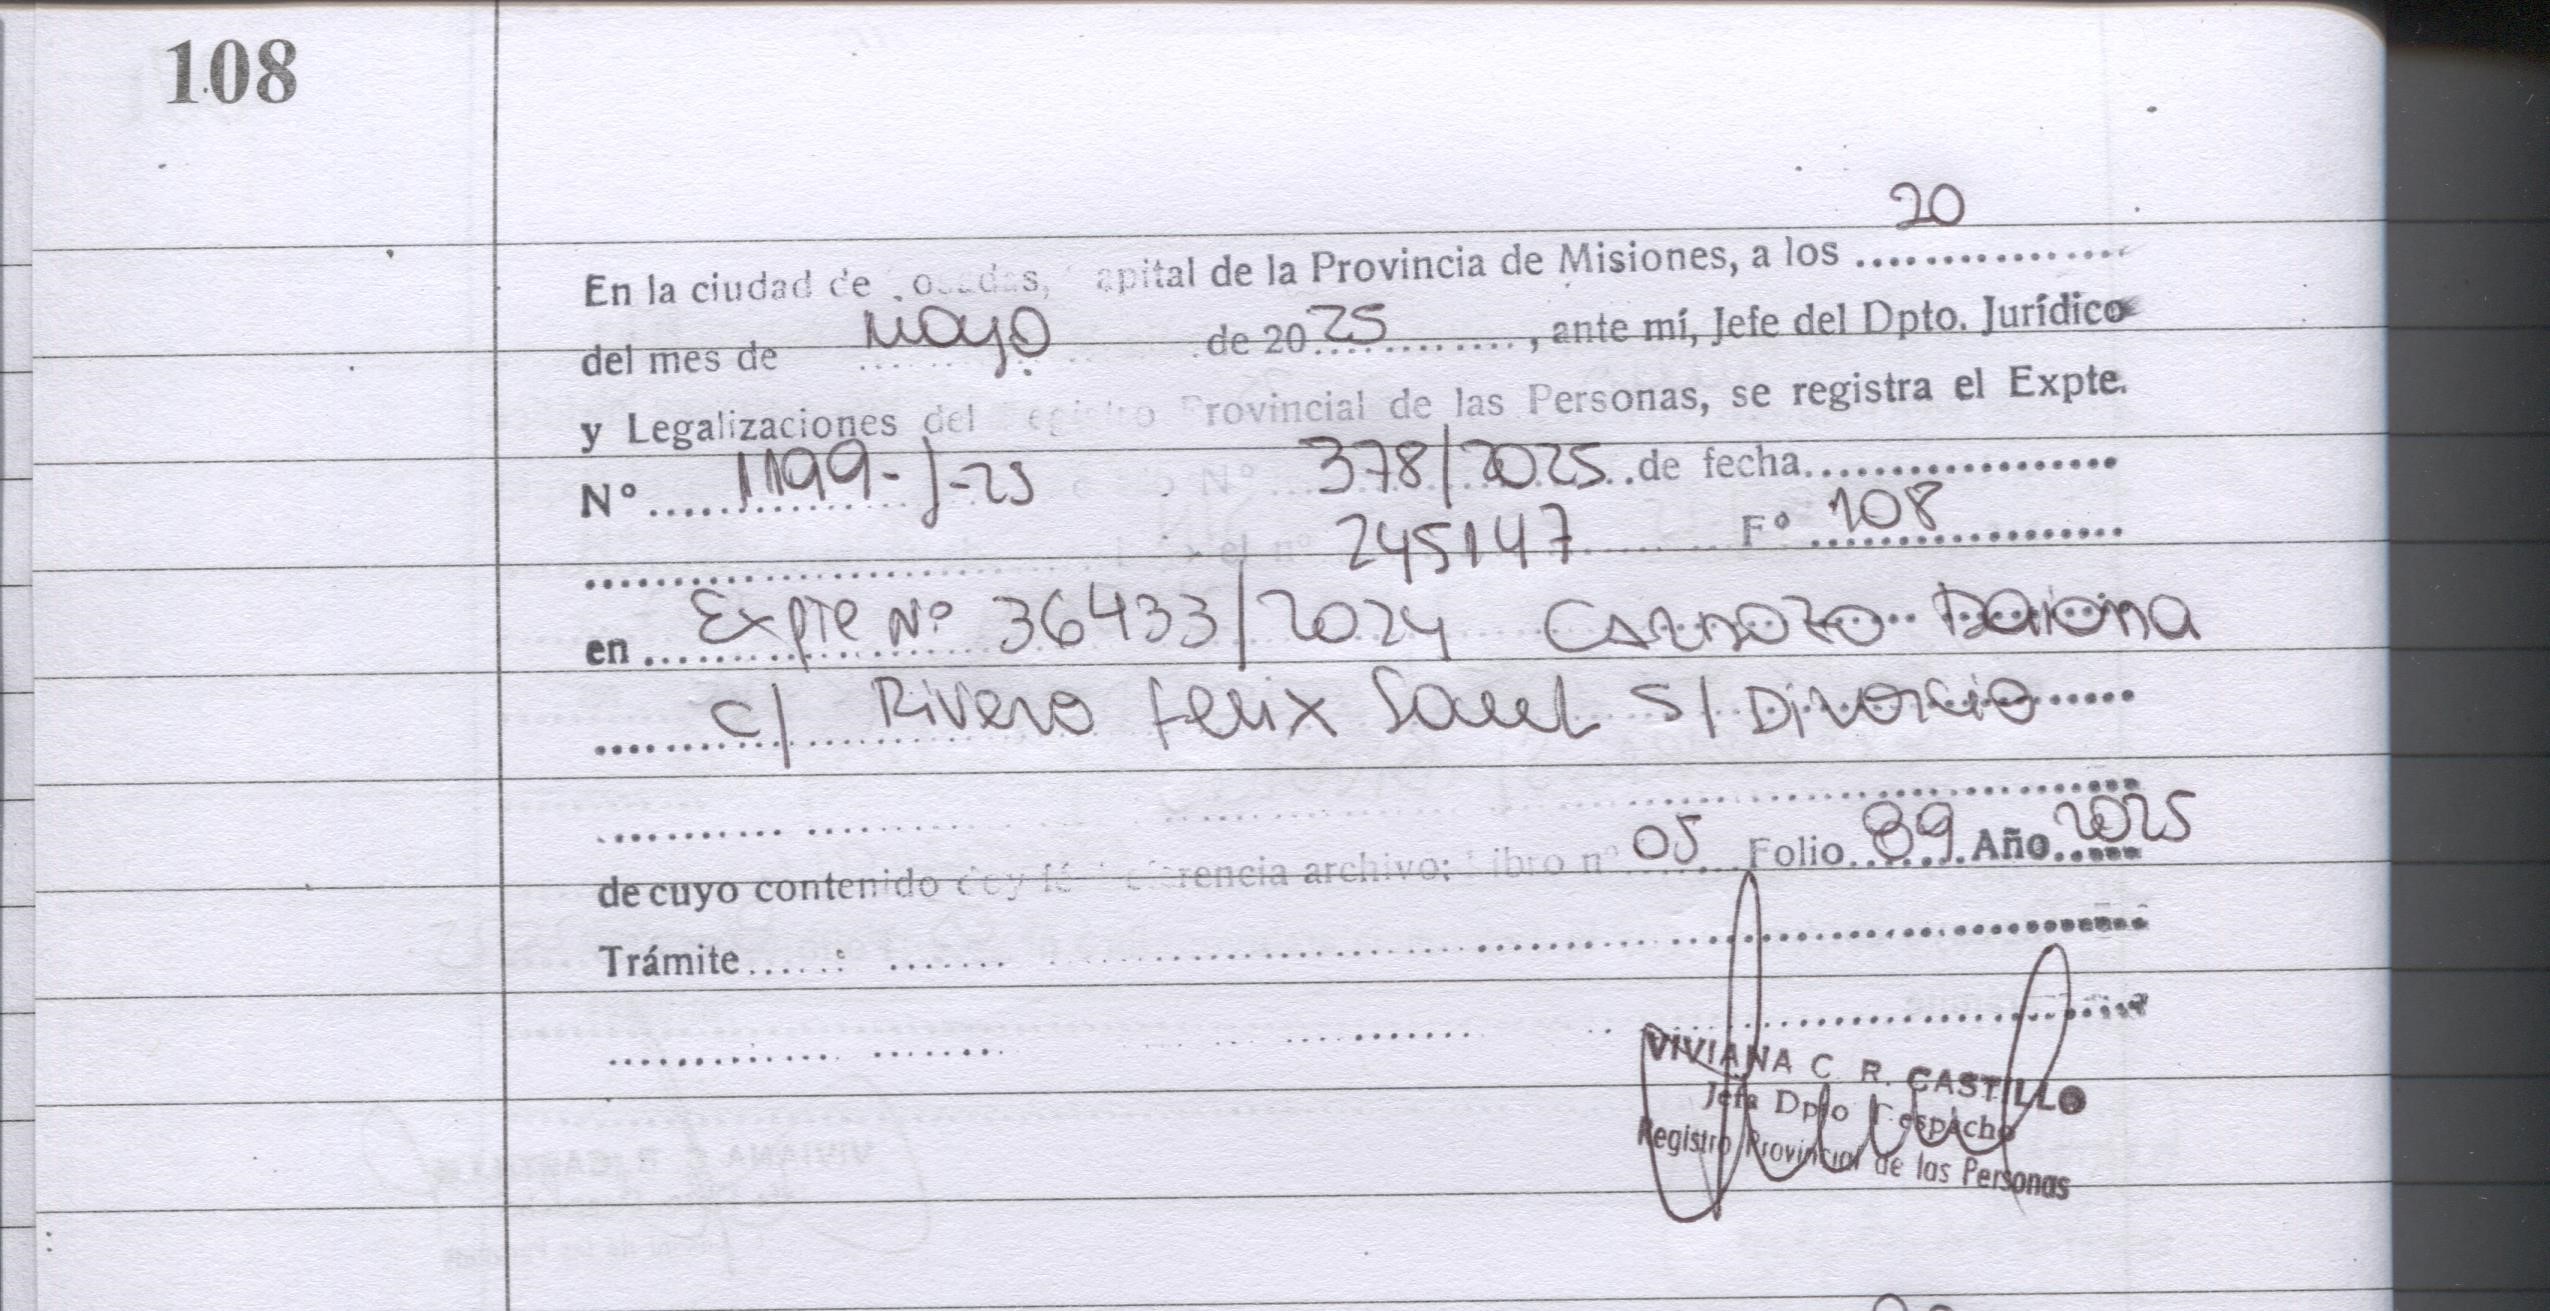 108
20
En la ciudad de Posadas, Capital de la Provincia de Misiones, a los ...............
del mes de mayo de 20 25 ............, ante mí, Jefe del Dpto. Jurídico
y Legalizaciones del Registro Provincial de las Personas, se registra el Expte.
Nº ...... 1199-J-25 Nº ... 378/2025 .. de fecha ..................
el nº 245147 ........ Fº 108 ..................
en .... Expte Nº 36433/2024 CARDOZO Daiana
c/ Rivero Felix Saul S/ Divorcio ......
de cuyo contenido doy fé Referencia archivo: Libro nº 05 Folio 89 Año 2025
Trámite ......
VIVIANA C. R. CASTILLO
Jefa Dpto Despacho
Registro Provincial de las Personas